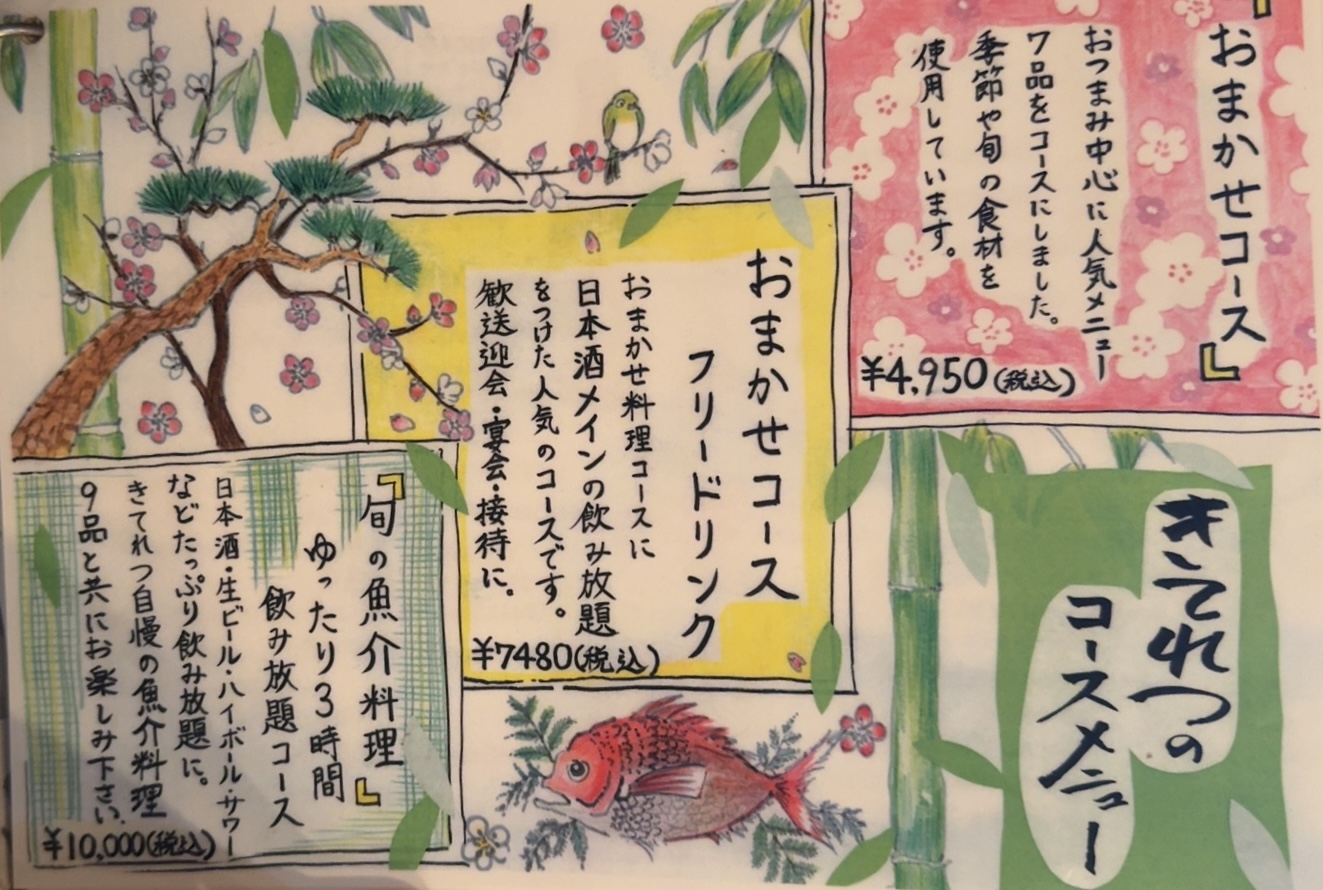 きてれつの
コースメニュー
『おまかせコース』
おつまみ中心に人気メニュー
7品をコースにしました。
季節や旬の食材を
使用しています。
¥4,950(税込)
おまかせコース
フリードリンク
おまかせ料理コースに
日本酒メインの飲み放題
をつけた人気のコースです。
歓送迎会・宴会・接待に。
¥7480(税込)
『旬の魚介料理』
ゆったり3時間
飲み放題コース
日本酒・生ビール・ハイボール・サワー
などたっぷり飲み放題に。
きてれつ自慢の魚介料理
9品と共にお楽しみ下さい。
¥10,000(税込)